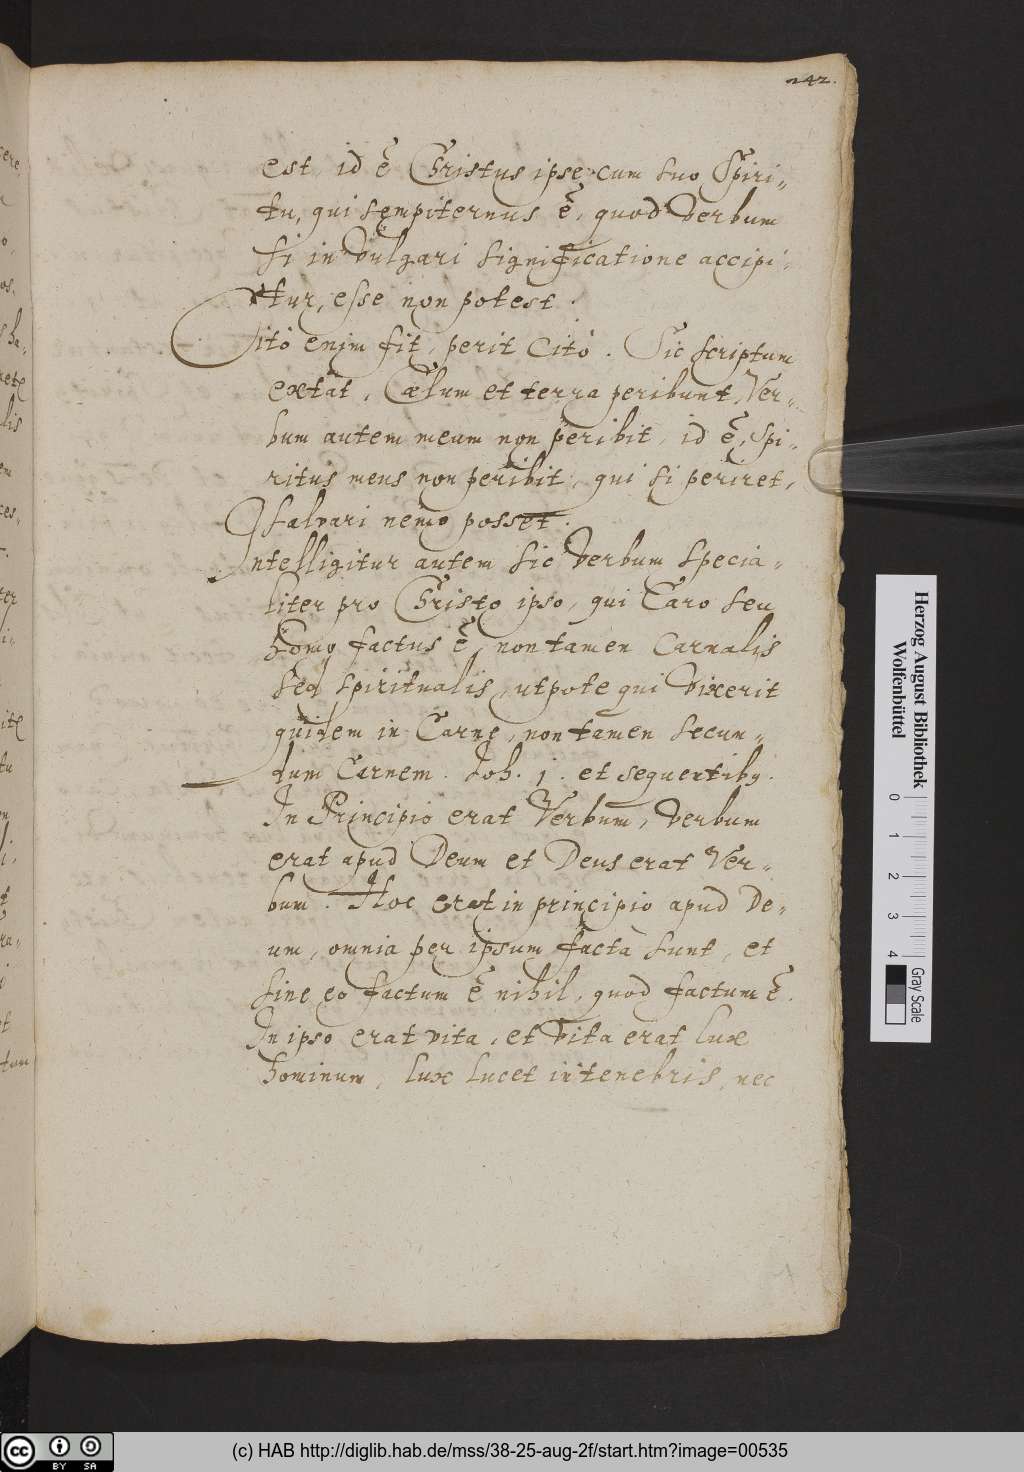 242.
est, id ē Christus ipse cum suo Spiri„
tu, qui sempiternus ē, quod Verbum
si in Vulgari significatione accipi„
tur, esse non potest.
Citò enim fit, perit Citò. Sic scriptum
extat, Cælum et terra peribunt, Ver„
bum autem meum non peribit, id ē, Spi„
ritus meus non peribit, qui si periret,
salvari nemo posset.
Intelligitur autem sic Verbum specia„
liter pro Christo ipso, qui Caro seu
homo factus ē, non tamen Carnalis
sed spiritualis, utpote qui Vixerit
quidem in Carne, non tamen secun„
dum Carnem. Joh. 1. et sequentibꝫ.
In Principio erat Verbum, Verbum
erat apud Deum et Deus erat Ver„
bum. Hoc erat in principio apud De„
um, omnia per ipsum facta sunt, et
sine eo factum ē nihil, quod factum ē.
In ipso erat vita, et Vita erat lux
hominum, lux lucet in tenebris, nec
Herzog August Bibliothek
Wolfenbüttel
0 1 2 3 4
Gray Scale
cc BY SA
(c) HAB http://diglib.hab.de/mss/38-25-aug-2f/start.htm?image=00535